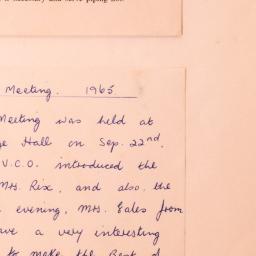 is necessary and serve piping hot.
Meeting. 1965
Meeting was held at
Hall on Sep. 22nd.
V.C.O. introduced the
Mrs. Rix, and also the
evening, Mrs. Eales from
a very interesting
to make the Best of